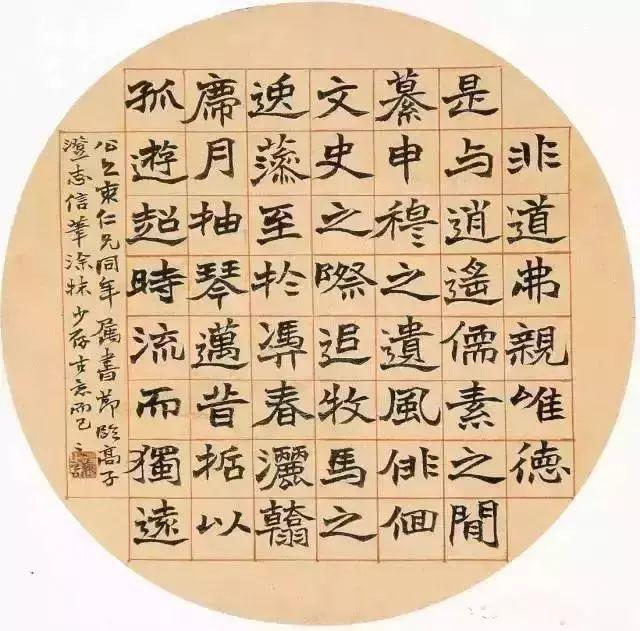 非道弗親唯德
是与逍遙儒素之間
慕申穆之遺風俳佪
文史之際追牧馬之
逸藻至於馮春灑翰
席月抽琴邁昔哲以
孤遊超時流而獨遠
仁兄同年属書節臨髙子
澄志信筆涂抹少存古意而已